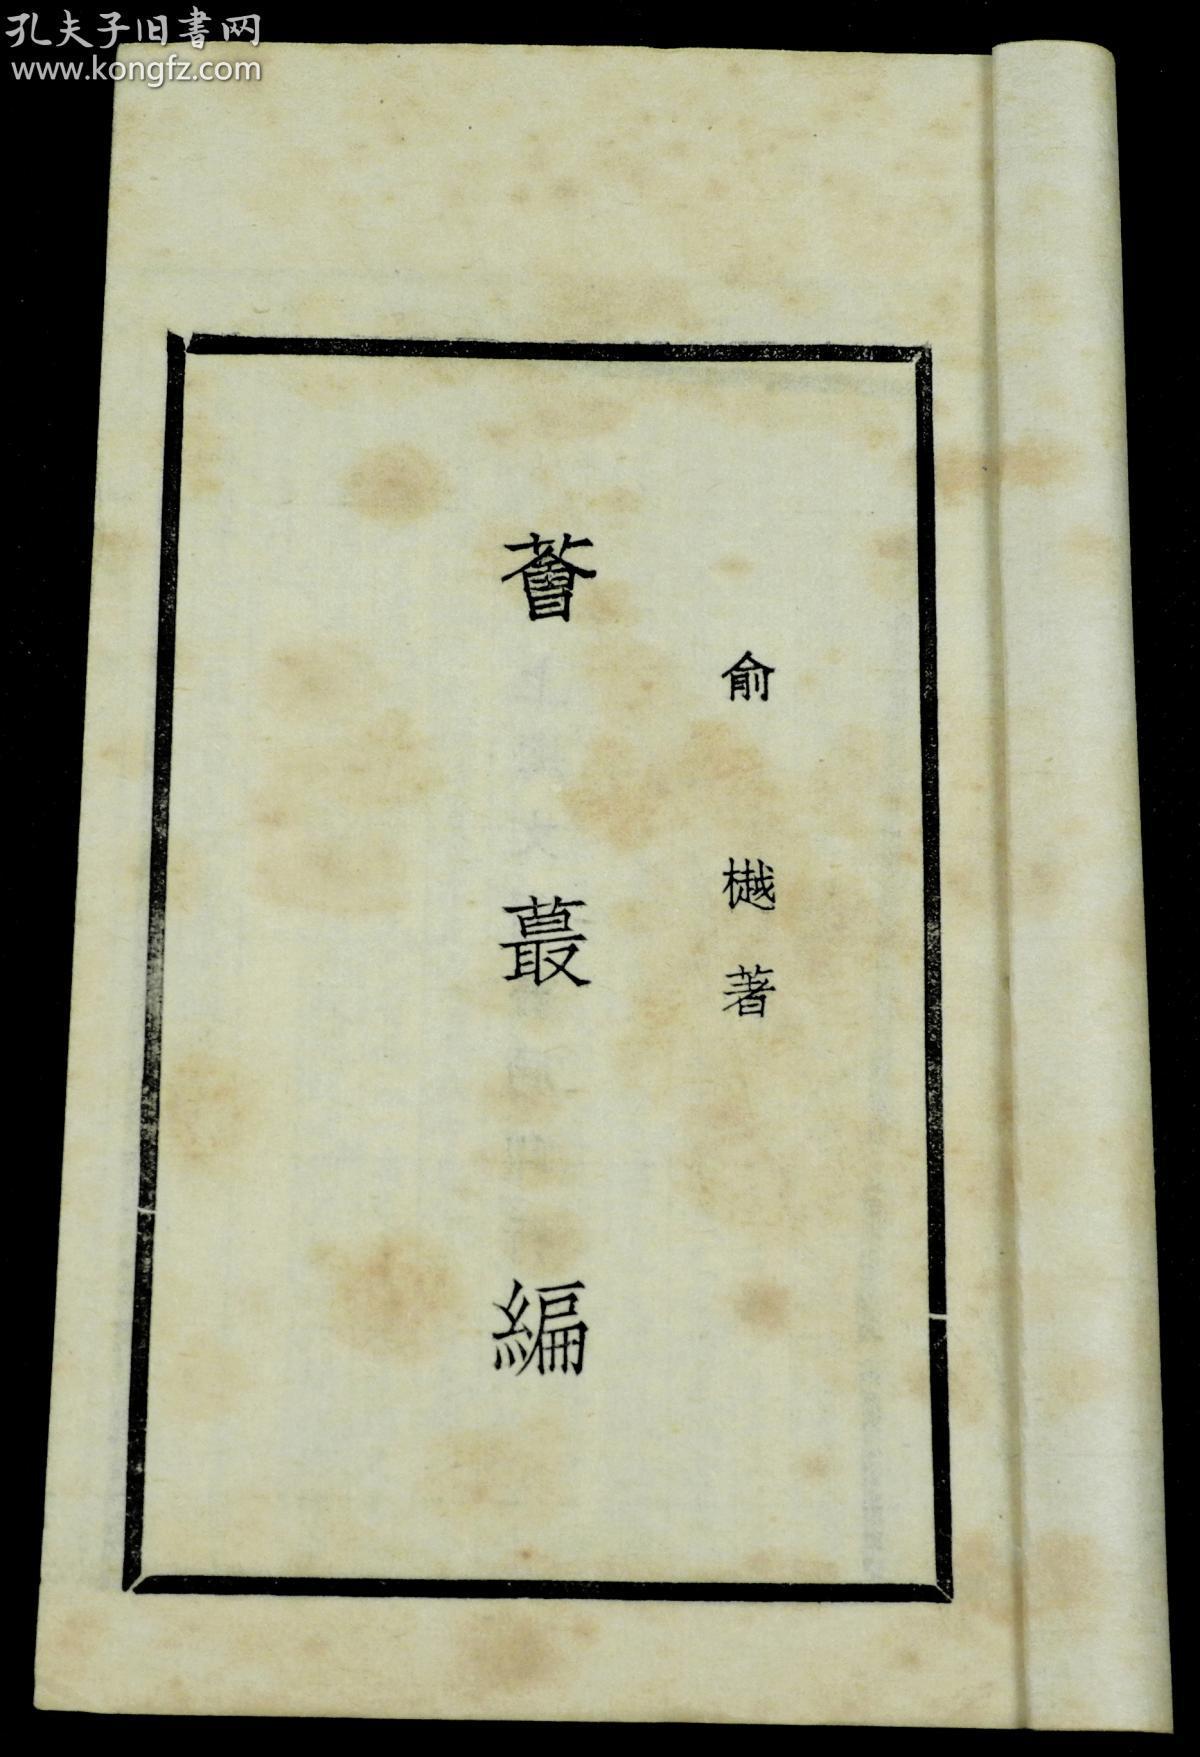 孔夫子旧書网
www.kongfz.com
俞樾著
薈蕞編